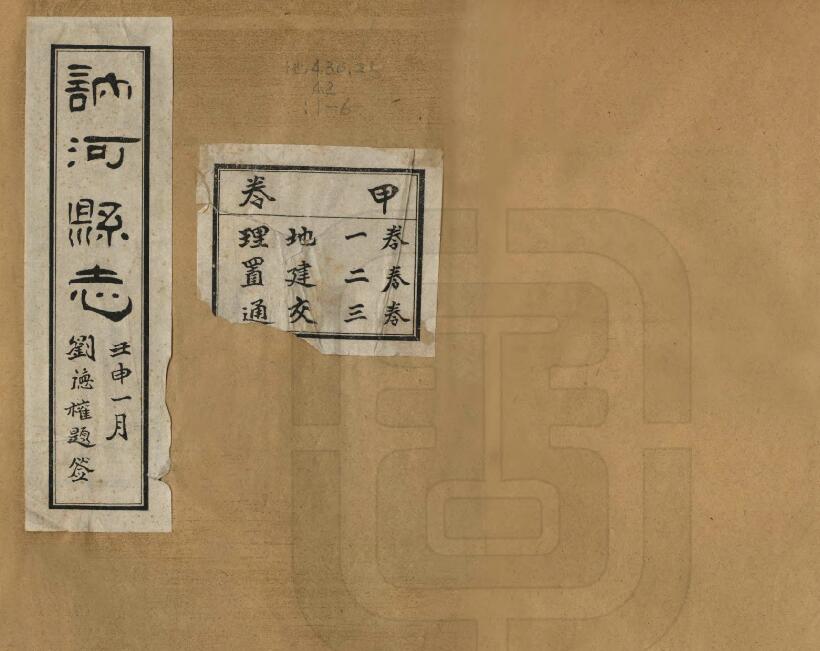 訥河縣志
壬申一月
劉德權題簽
甲卷
卷一地理
卷二建置
卷三交通
4.2
11-6